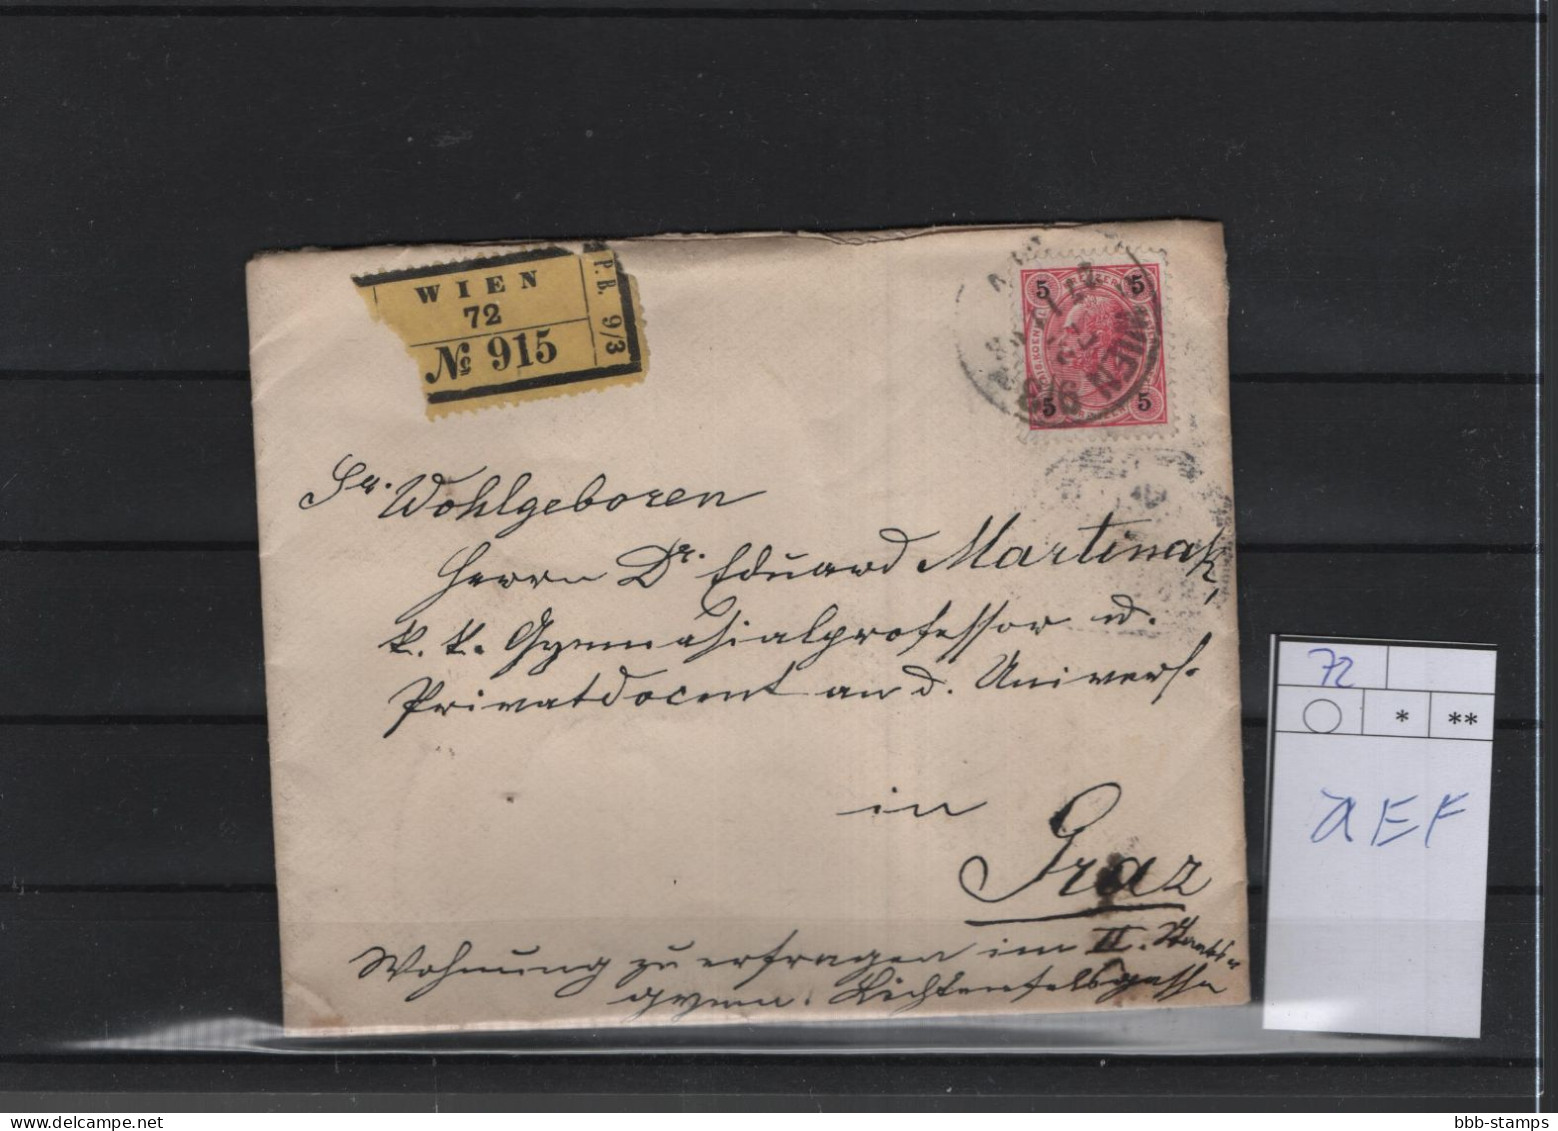 WIEN
72
№ 915
P.B. 9/3
5 5
5 5
WIEN
Sr. Wohlgeboren
Herrn Dr. Eduard Martinak,
k. k. Gymnasialprofessor u.
Privatdocent an d. Univers.
in
Graz
Wohnung zu erfragen im II. Staats-
gymn. Lichtenfelsgasse
72
* **
a EF
bbb-stamps